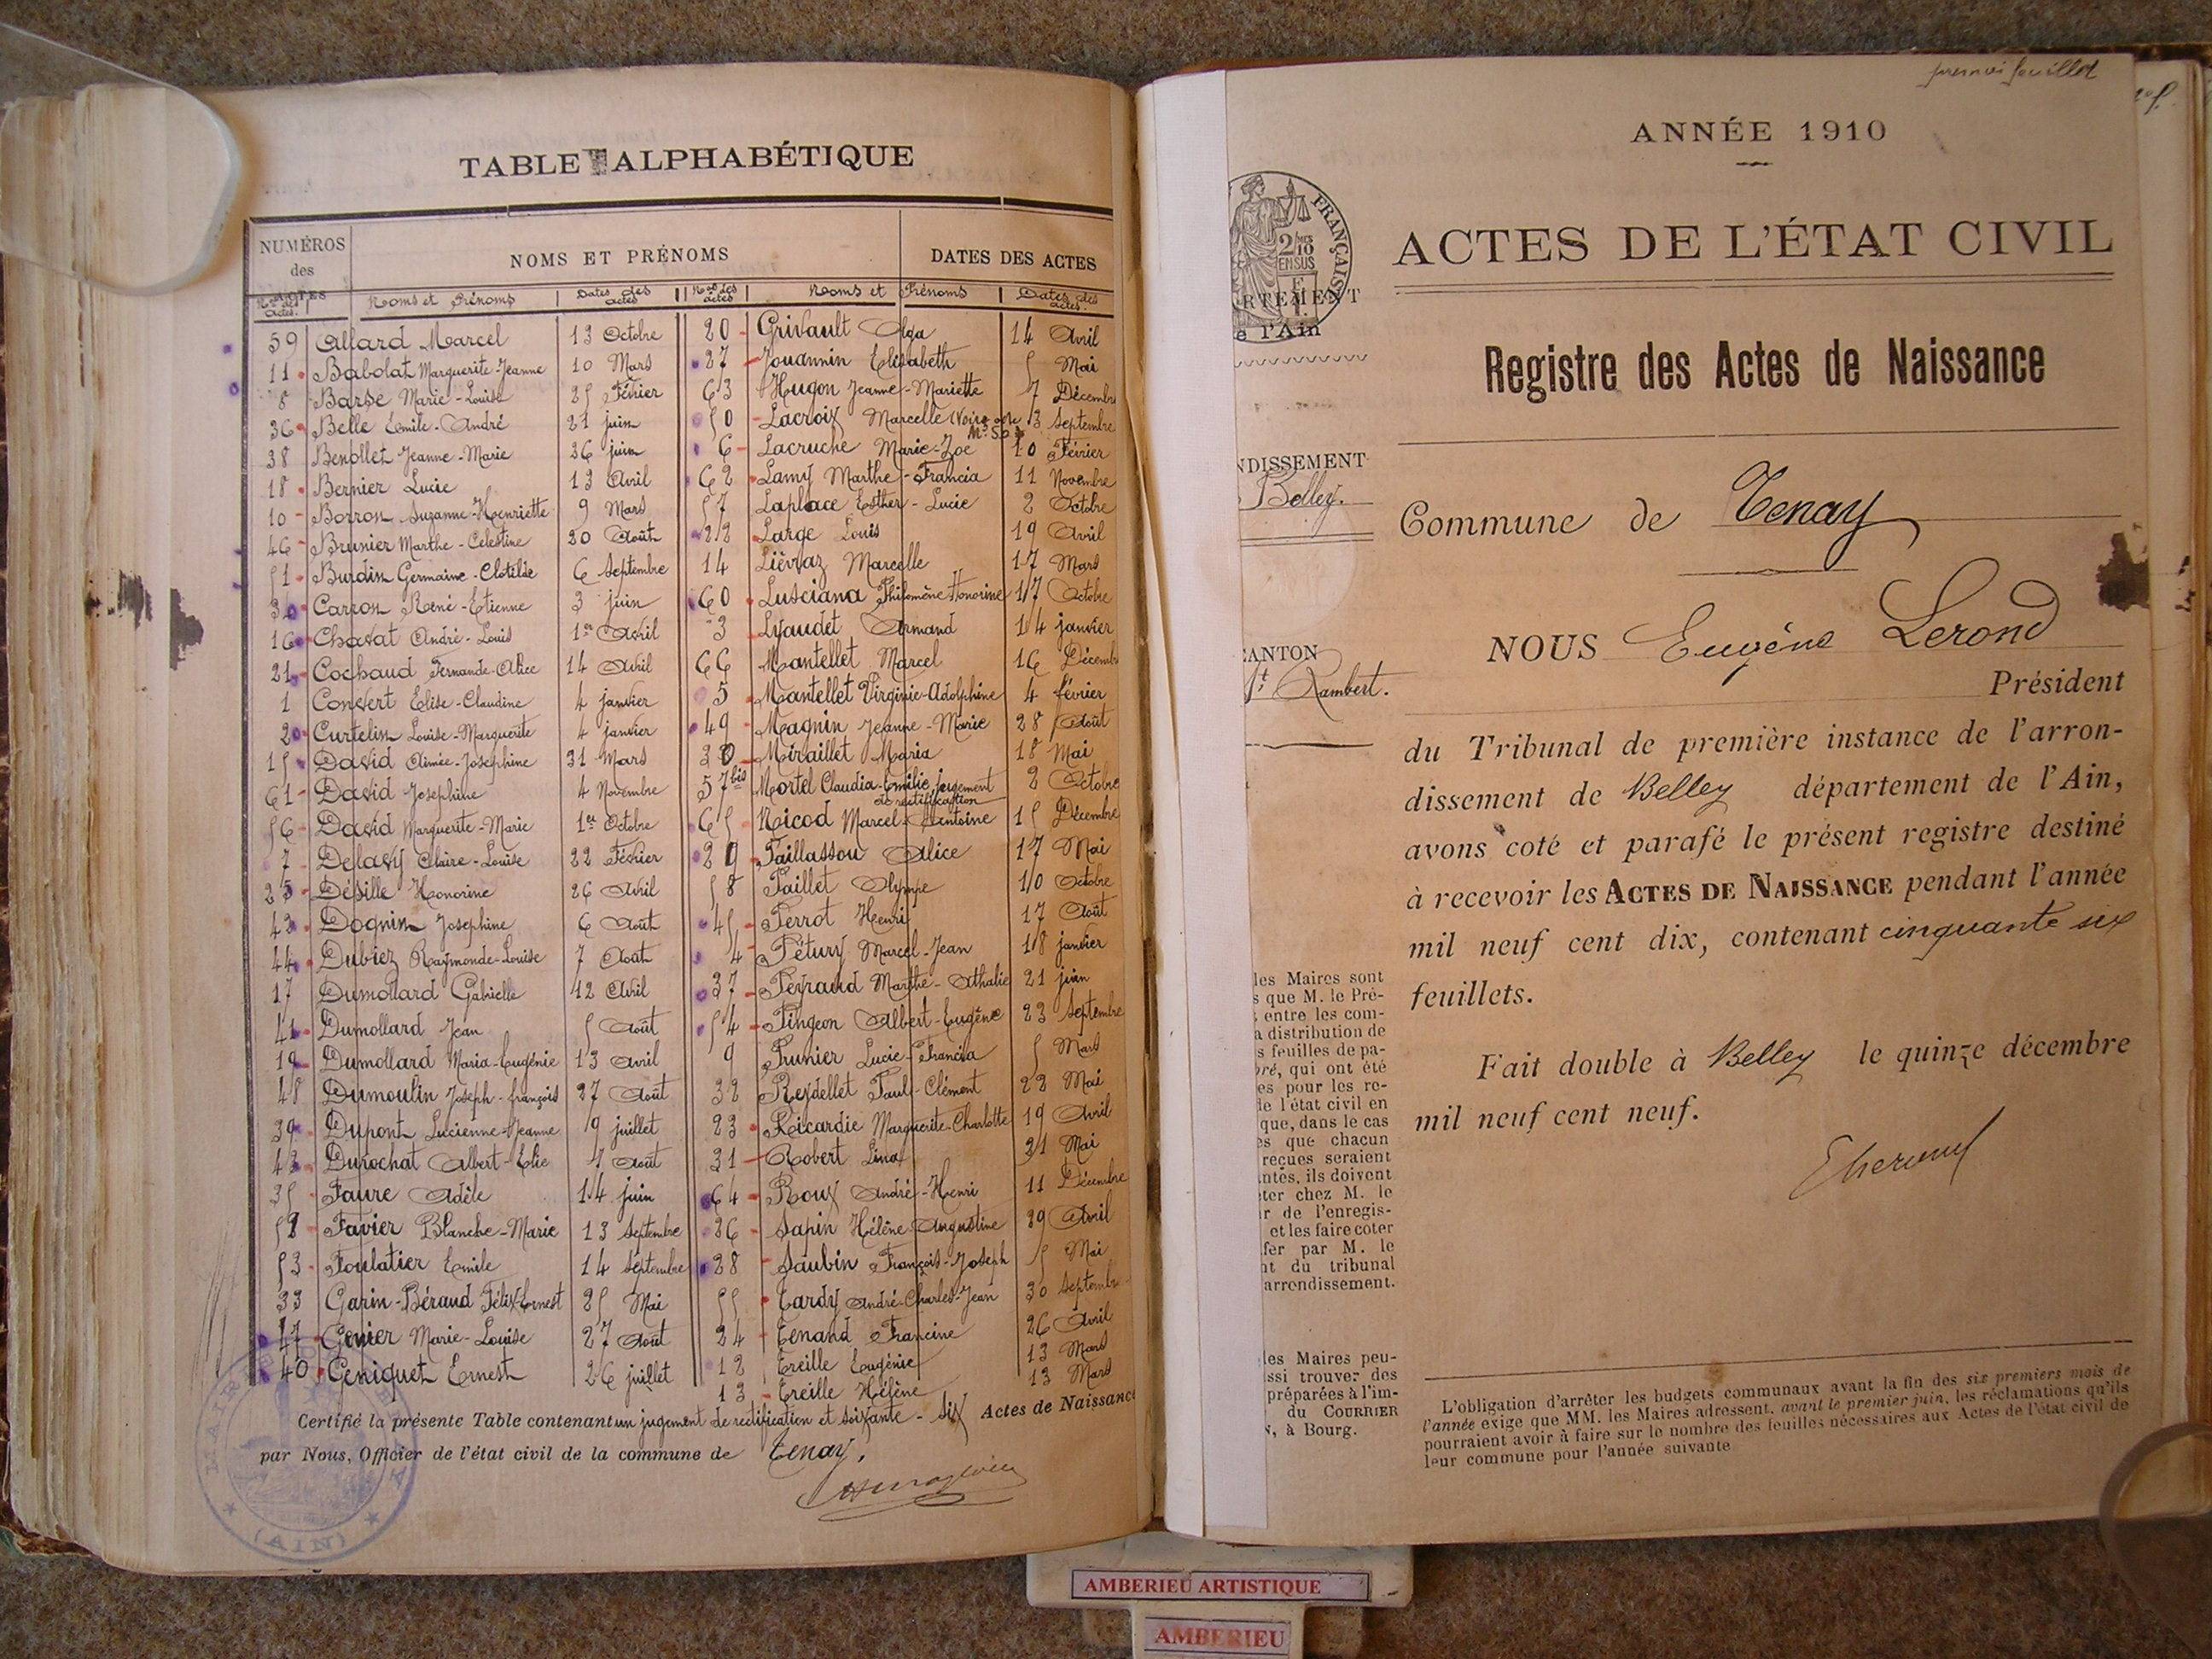 TABLE ALPHABÉTIQUE
NUMÉROS des ACTES
NOMS ET PRÉNOMS
DATES DES ACTES
Nos des actes. Noms et Prénoms Dates des actes Nos des actes Noms et Prénoms Dates des actes.
59 Allard Marcel 13 Octobre
11 Babolat Marguerite-Jeanne 10 Mars
8 Barse Marie-Louise 25 Février
36 Belle Emile-André 21 juin
38 Benollet Jeanne-Marie 26 juin
18 Bernier Lucie 13 Avril
10 Borron Suzanne-Henriette 9 Mars
46 Brunier Marthe-Celestine 20 Août
51 Burdin Germaine-Clotilde 6 Septembre
Carron René-Etienne 3 juin
16 Chavat André-Louis 1er Avril
21 Cochaud Fernande-Alice 14 Avril
1 Convert Elise-Claudine 4 janvier
Curtelin Louise-Marguerite 4 janvier
15 David Aimée-Josephine 31 Mars
61 David Josephine 4 Novembre
56 David Marguerite-Marie 1er Octobre
7 Delavy Claire-Louise 22 Février
25 Désille Honorine 26 Avril
Dognin Josephine 6 Août
44 Dubiez Raymonde-Louise 7 Août
17 Dumollard Gabrielle 12 Avril
41 Dumollard Jean 5 Août
19 Dumollard Maria-Eugénie 13 Avril
48 Dumoulin Joseph-françois 27 Août
39 Dupont Lucienne-Jeanne 19 juillet
Durochat Albert-Elie 7 Août
35 Faure Adèle 14 juin
52 Favier Blanche-Marie 13 Septembre
53 Foulatier Emile 14 Septembre
33 Garin-Béraud Félix-Ernest 25 Mai
47 Genier Marie-Louise 27 Août
40 Geniquet Ernest 26 juillet
20 Grivault Olga 14 Avril
27 Jouannin Elisabeth 5 Mai
63 Hugon Jeanne-Mariette 7 Décembre
50 Lacroix Marcelle 3 Septembre
6 Lacruche Marie-Zoé 10 Février
62 Lamy Marthe-Francia 11 Novembre
57 Laplace Esther-Lucie 2 Octobre
22 Large Louis 19 Avril
14 Liévraz Marcelle 17 Mars
60 Lusciana Philomène-Honorine 17 Octobre
3 Lyaudet Armand 14 janvier
66 Mantellet Marcel 16 Décembre
5 Mantellet Virginie-Adolphine 4 février
49 Magnin Jeanne-Marie 28 Août
30 Miraillet Maria 18 Mai
57bis Mortel Claudia-Emilie, jugement de rectification 2 Octobre
65 Nicod Marcel-Antoine 15 Décembre
29 Paillasson Alice 17 Mai
58 Paillet Olympe 10 Octobre
45 Perrot Henri 17 Août
4 Pétury Marcel-Jean 18 janvier
37 Peyraud Marthe-Athalie 21 juin
54 Pingeon Albert-Eugène 23 Septembre
9 Prunier Lucie-Francia 5 Mars
32 Reydellet Paul-Clément 22 Mai
23 Ricardie Marguerite-Charlotte 19 Avril
31 Robert Lina 21 Mai
64 Roux André-Henri 11 Décembre
26 Sapin Hélène-Augustine 29 Avril
28 Saubin François-Joseph 5 Mai
55 Tardy André-Charles-Jean 30 Septembre
24 Tenand Francine 26 Avril
12 Treille Eugénie 13 Mars
13 Treille Hélène 13 Mars
Certifié la présente Table contenant un jugement de rectification et soixante-six Actes de Naissance
par Nous, Officier de l'état civil de la commune de Tenay.
MAIRIE
(AIN)
premier feuillet
1er f.
ANNÉE 1910
FRANÇAISE
2/10
EN SUS
RTEMENT
e l'Ain
ACTES DE L'ÉTAT CIVIL
Registre des Actes de Naissance
NDISSEMENT
Belley.
Commune de Tenay
ANTON
St Rambert.
NOUS Eugène Lerond
Président
du Tribunal de première instance de l'arron-
dissement de Belley département de l'Ain,
avons coté et parafé le présent registre destiné
à recevoir les ACTES DE NAISSANCE pendant l'année
mil neuf cent dix, contenant cinquante six
feuillets.
Fait double à Belley le quinze décembre
mil neuf cent neuf.
les Maires sont
s que M. le Pré-
entre les com-
a distribution de
s feuilles de pa-
ré, qui ont été
es pour les re-
le l'état civil en
que, dans le cas
es que chacun
reçues seraient
ntes, ils doivent
ter chez M. le
r de l'enregis-
et les faire coter
fer par M. le
nt du tribunal
arrondissement.
les Maires peu-
ssi trouver des
préparées à l'im-
du COURRIER
, à Bourg.
L'obligation d'arrêter les budgets communaux avant la fin des six premiers mois de
l'année exige que MM. les Maires adressent, avant le premier juin, les réclamations qu'ils
pourraient avoir à faire sur le nombre des feuilles nécessaires aux Actes de l'état civil de
leur commune pour l'année suivante
AMBERIEU ARTISTIQUE
AMBERIEU